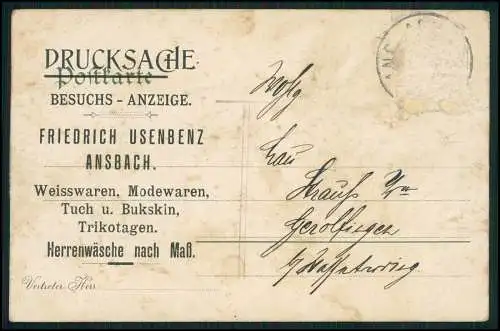 DRUCKSACHE.
Postkarte
BESUCHS - ANZEIGE.
FRIEDRICH USENBENZ
ANSBACH.
Weisswaren, Modewaren,
Tuch u. Bukskin,
Trikotagen.
Herrenwäsche nach Maß.
Vertreter Herr
Frau
Strauß
Gerolfingen